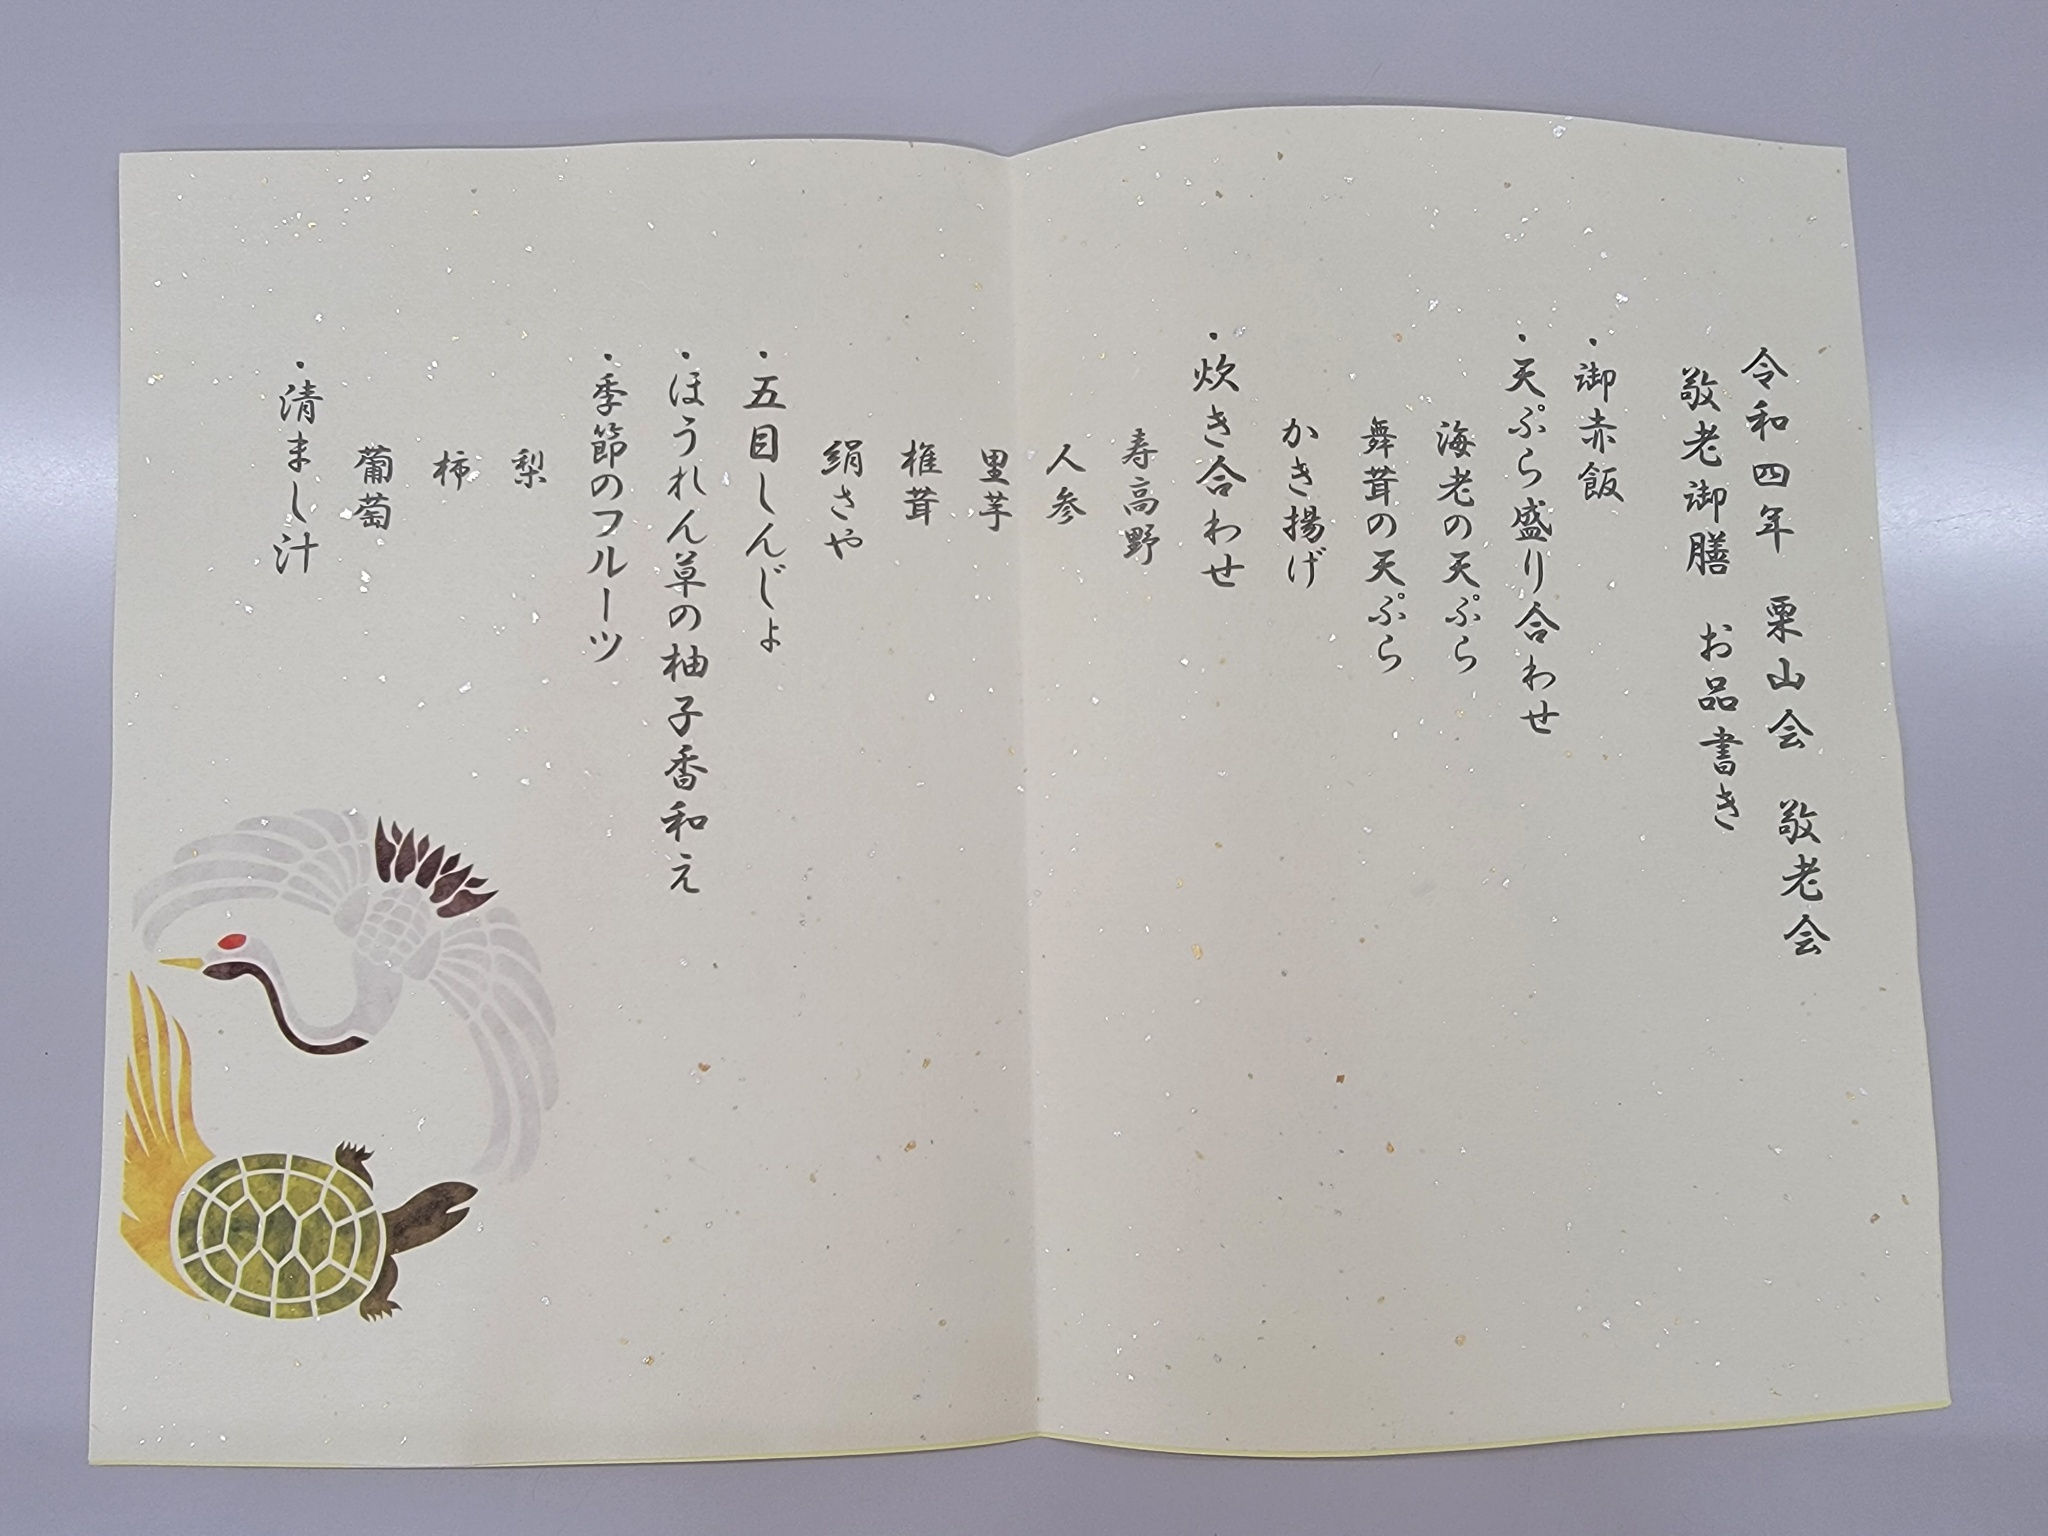 令和四年 栗山会 敬老会
敬老御膳 お品書き
・御赤飯
・天ぷら盛り合わせ
海老の天ぷら
舞茸の天ぷら
かき揚げ
・炊き合わせ
寿高野
人参
里芋
椎茸
絹さや
・五目しんじょ
・ほうれん草の柚子香和え
・季節のフルーツ
梨
柿
葡萄
・清まし汁